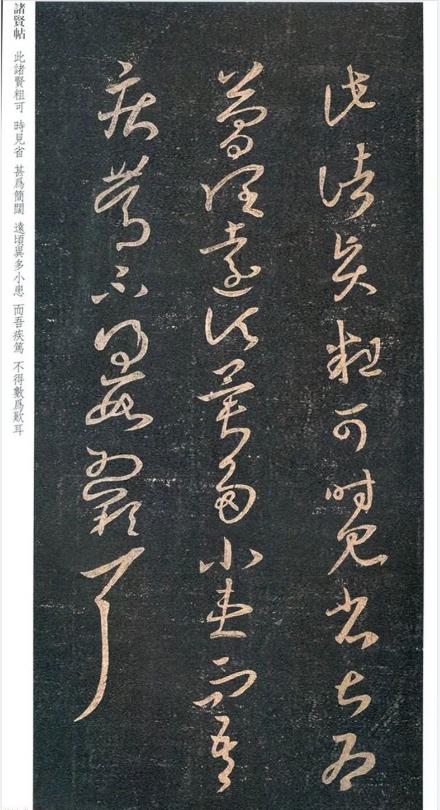 諸賢帖 此諸賢粗可 時見省 甚爲簡闊 遠頃異多小患 而吾疾篤 不得數爲歎耳
此諸賢粗可時見省甚爲
簡闊遠頃異多小患而吾
疾篤不得數爲歎耳